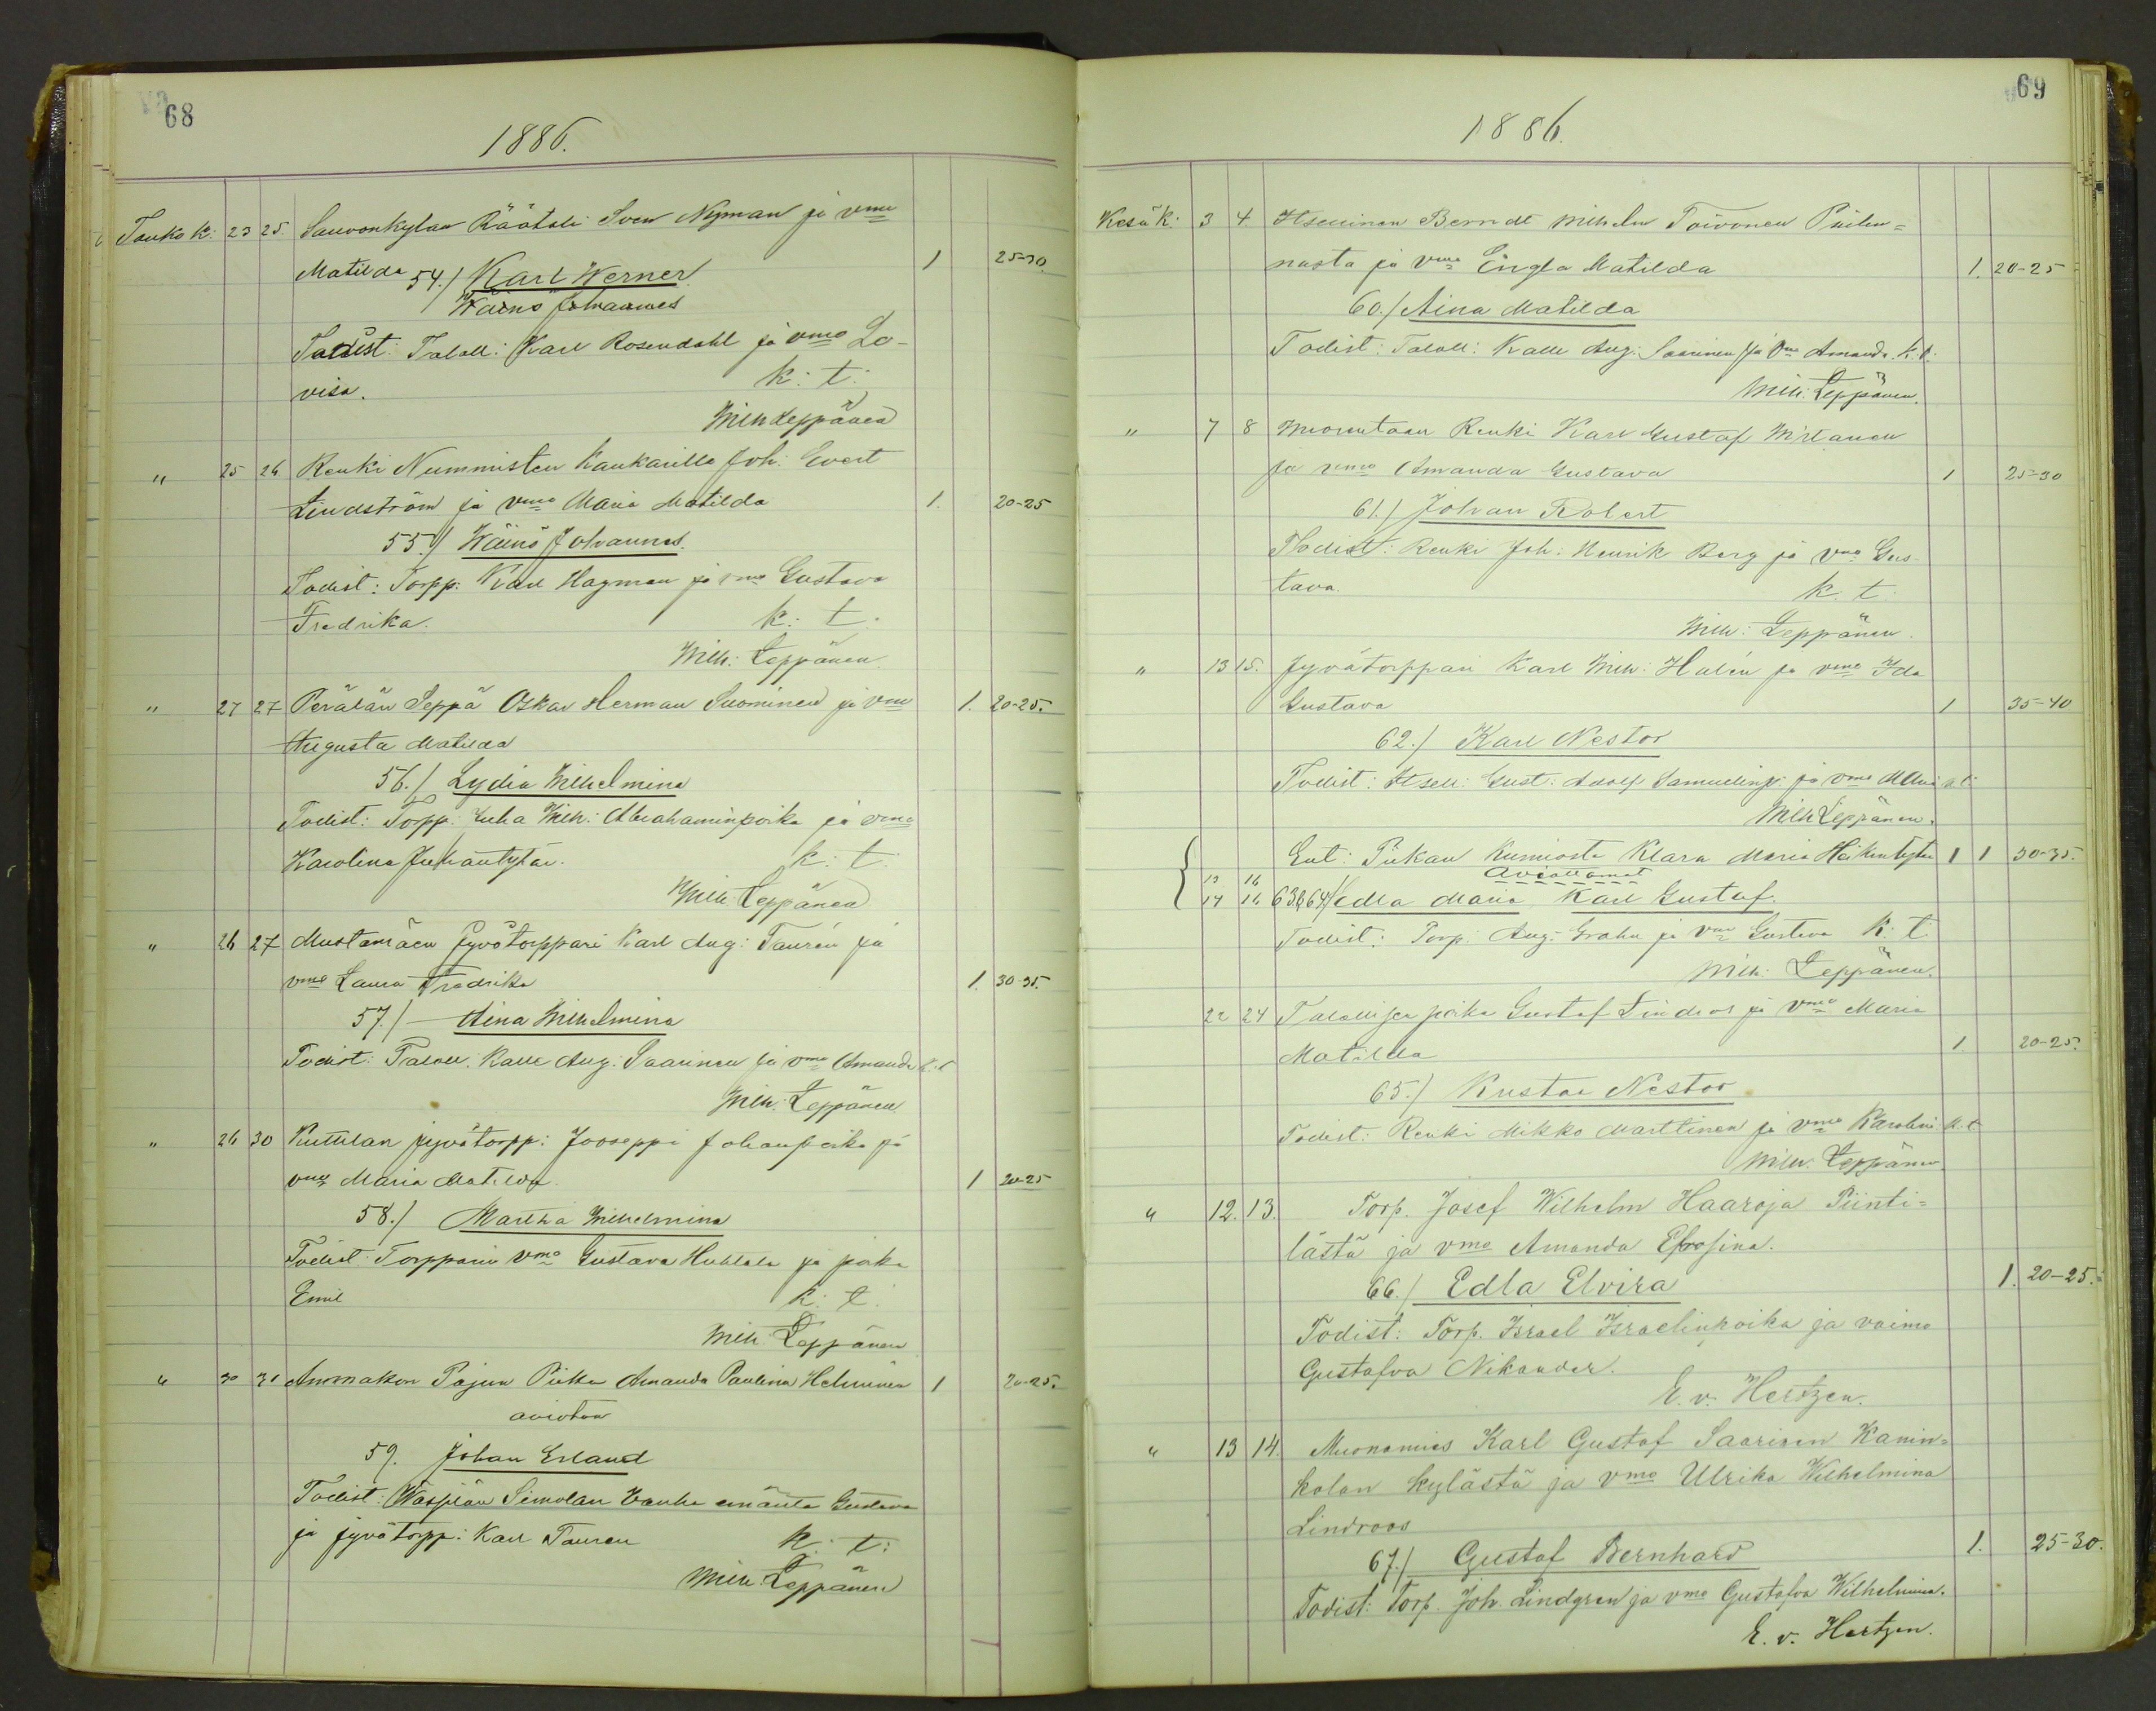 68
1886.
Touko k: 23 25. Sauvonkylän Räätäli Sven Nyman ja vmo
Matilda 54./ Karl Werner 1 25-30.
Wäinö Johannes
Todist: Taloll: Karl Rosendahl ja vmo Lo-
visa. k: t:
Wilh Leppänen
" 25 26 Renki Nummisten Kankarilla Joh: Evert
Lindström ja vmo Maria Matilda 1. 20-25
55./ Wäinö Johannes.
Todist: Torpp: Karl Hagman ja vmo Gustava
Fredrika. k: t:
Wilh: Leppänen.
" 27 27 Perälän Seppä Oskar Herman Suominen ja vmo 1. 20-25.
Augusta Matilda
56./ Lydia Wilhelmina
Todist: Torpp: Juha Wilh: Abrahaminpoika ja vmo
Karolina Juhantytär. k: t:
Wilh: Leppänen
" 26 27 Mustamäen Jyvätorppari Karl Aug: Taurén ja
vmo Laura Fredrika 1. 30-35.
57./ Aina Wilhelmina
Todist: Taloll. Kalle Aug: Saarinen ja vmo Amanda k.t
Wilh: Leppänen
" 26 30 Kuttilan jyvätorpp: Jooseppi Johanpoika ja
vmo Maria Matilda. 1 20-25
58./ Martha Wilhelmina
Todist: Torpparin vmo Gustava Huhtala ja poika
Emil k: t:
Wilh: Leppänen
" 30 31 Ammakon Pajun Piika Amanda Paulina Helminen 1 20-25.
avioton
59. Johan Erland
Todist: Waspiän Simolan Vanha emäntä Gustava
ja jyvätorpp: Karl Tauren k: t:
Wilh: Leppänen
69
1886.
Kesä k: 3 4. Itsellinen Berndt Wilhelm Toivonen
nasta ja vmo Engla Matilda 1. 20-25
60./ Aina Matilda
Todist: Taloll: Kalle Aug: Saarinen ja vmo Amanda. k.t.
Wilh: Leppänen.
" 7 8 Renki Karl Gustaf
ja vmo Amanda Gustava 1 25-30
61./ Johan Robert
Todist: Renki Joh: Henrik Berg ja vmo Gus-
tava. k. t.
Wilh: Leppänen.
" 13 15. Jyvätorppan Karl Wilh: Halén ja vmo Ida
Gustava 1 35-40
62./ Karl Nestor
Todist: Itsell: Gust: Adolf Samuelinp: ja vmo k.t.
Wilh Leppänen.
Ent: Piikan Klara Maria Heikintytär 1 1 30-35.
Aviottomat
13 16
14 16 63 & 64./ Edla Maria Karl Gustaf.
Todist: Torp: Aug: Grahn ja vmo Gustava k. t.
Wilh: Leppänen.
22 24 Talollisen poika Gustaf Lindros ja vmo Maria
Matilda 1. 20-25.
65./ Kustaa Nestor
Todist: Renki Mikko Marttinen ja vmo Karolina k.t.
Wilh. Leppänen.
" 12. 13. Torp. Josef Wilhelm Haaroja Piinti-
lästä ja vmo Amanda Efrosina.
66./ Edla Elvira 1. 20-25.
Todist: Torp. Israel Israelinpoika ja vaimo
Gustafva Nikander.
E. v. Hertzen.
" 13 14. Muonamies Karl Gustaf Saarinen Kanin-
kolan kylästä ja vmo Ulrika Wilhelmina
Lindroos
67./ Gustaf Bernhard 1. 25-30.
Todist: Torp. Joh. Lindgren ja vmo Gustafva Wilhelmina.
E. v. Hertzen.